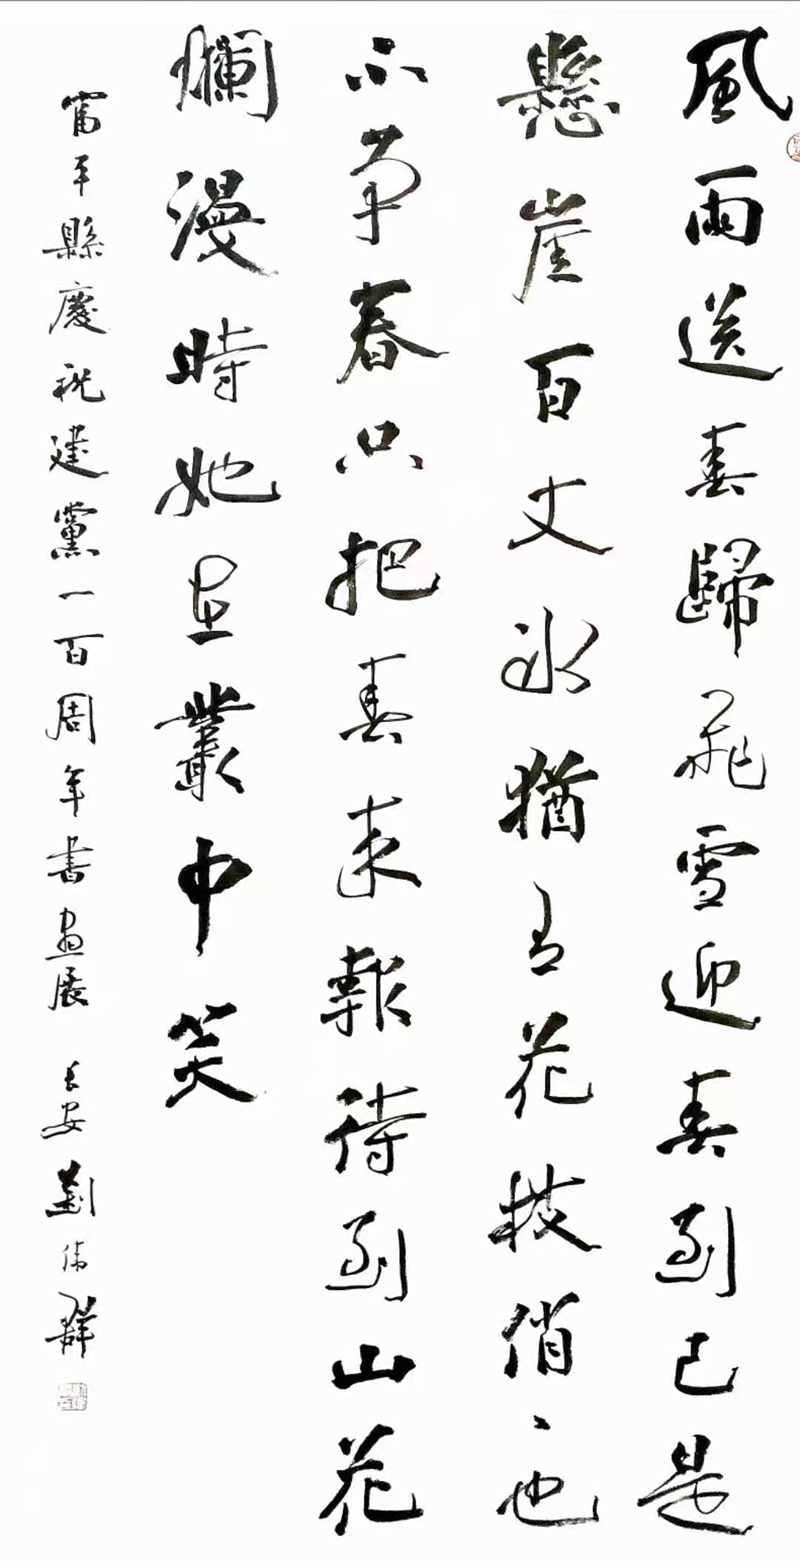 風雨送春歸飛雪迎春到已是
懸崖百丈冰猶有花枝俏〻也
不争春只把春来報待到山花
爛漫時她在叢中笑
富平縣慶祝建黨一百周年書畫展 長安劉偉群